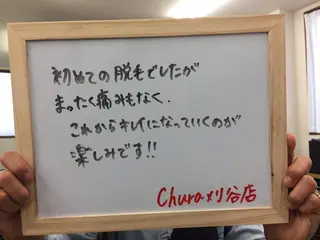 初めての脱毛でしたが
まったく痛みもなく、
これからキレイになっていくのが
楽しみです!!
Chura刈谷店